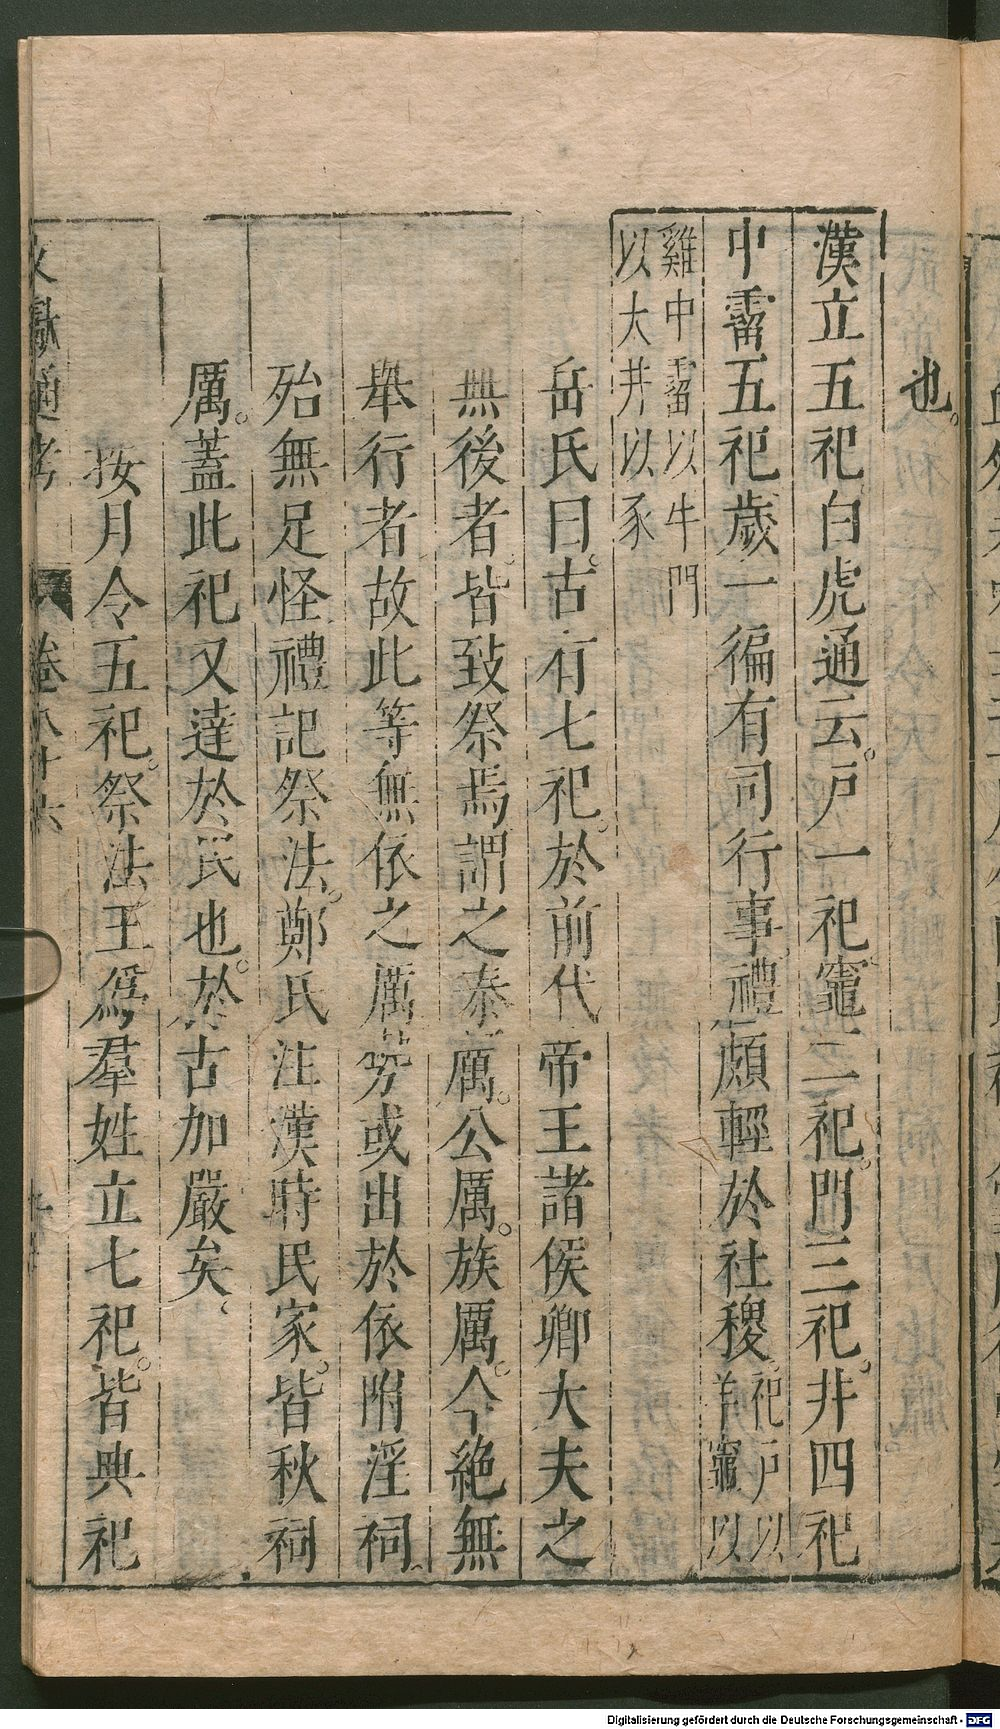 也
漢立五祀白虎通云戸一祀竈二祀門三祀井四祀
中霤五祀歲一徧有司行事禮頗輕於社稷祀戸以羊竈以
雞中霤以牛門以犬井以豕
岳氏曰古有七祀於前代帝王諸侯卿大夫之
無後者皆致祭焉謂之泰厲公厲族厲今絕無
舉行者故此等無依之厲勞或出於依附淫祠
殆無足怪禮記祭法鄭氏注漢時民家皆秋祠
厲蓋此祀又達於民也於古加嚴矣
按月令五祀祭法王爲羣姓立七祀皆典祀
文獻通考 卷八十六
Digitalisierung gefördert durch die Deutsche Forschungsgemeinschaft - DFG